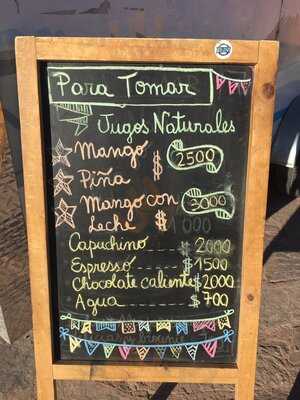 Para Tomar
Jugos Naturales
Mango $ 2500
Piña
Mango con Leche $ 3000
Capuchino $ 2000
Espresso $ 1500
Chocolate caliente $ 2000
Agua $ 700